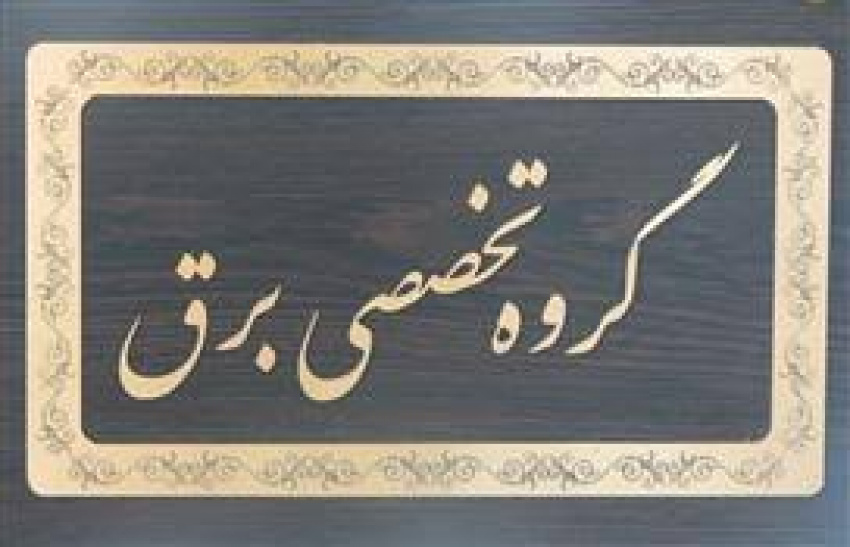 گروه تخصصی برق